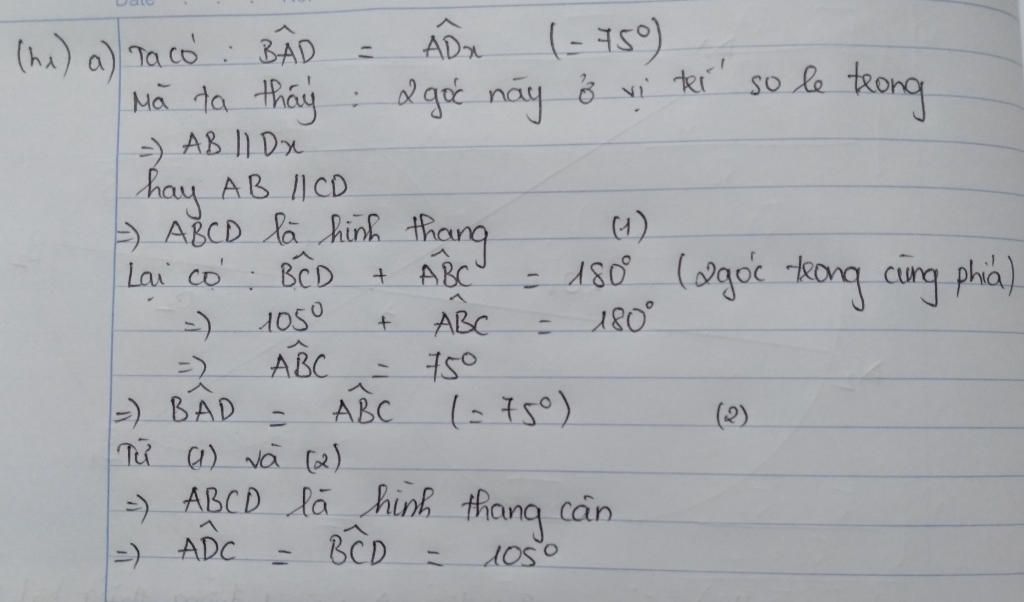 (h1) a) Ta có : B̂AD = ÂDx (= 75⁰)
Mà ta thấy : 2 góc này ở vị trí so le trong
=) AB // Dx
hay AB // CD
=) ABCD là hình thang (1)
Lại có : B̂CD + ÂBC = 180° (2 góc trong cùng phía)
=) 105⁰ + ÂBC = 180°
=) ÂBC = 75⁰
=) B̂AD = ÂBC (= 75⁰) (2)
Từ (1) và (2)
=) ABCD là hình thang cân
=) ÂDC = B̂CD = 105⁰